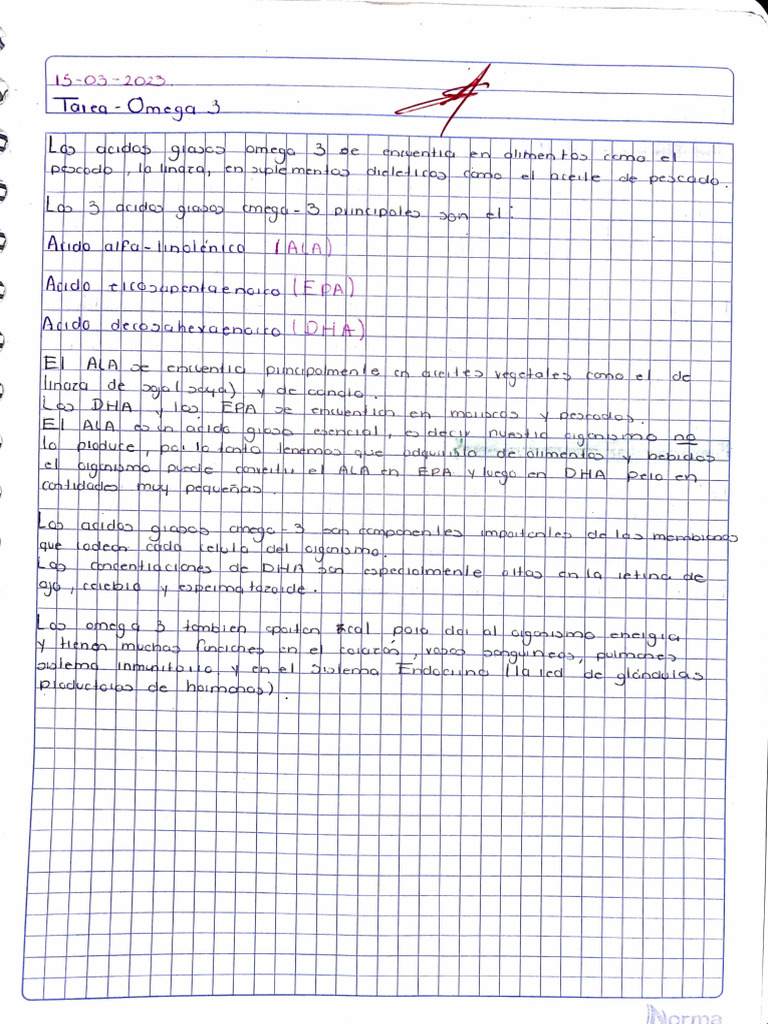 15-03-2023
Tarea - Omega 3
Los acidos grasos omega 3 se encuentra en alimentos como el
pescado, la linaza, en suplementos dieleticos como el aceite de pescado.
Los 3 acidos grasos omega-3 principales son el:
Acido alfa-linolénico (ALA)
Acido eicosapentaenoico (EPA)
Acido decosahexaenoico (DHA)
El ALA se encuentra principalmente en aceites vegetales como el de
linaza de soja (soya) y de canola.
Los DHA y los EPA se encuentran en mariscos y pescados.
El ALA es un acido graso esencial, es decir nuestro organismo no
lo produce, por lo tanto tenemos que adquirirlo de alimentos y bebidas
el organismo puede convertir el ALA en EPA y luego en DHA pero en
cantidades muy pequeñas.
Los acidos grasos omega-3 son componentes importantes de las membranas
que rodean cada celula del organismo.
Las concentraciones de DHA son especialmente altas en la retina de
ojo, cerebro y espermatozoide.
Los omega 3 tambien aportan cal para dar al organismo energia
y tienen muchas funciones en el corazón, vasos sanguineos, pulmones
sistema inmunitario y en el sistema Endocrino (la red de glándulas
productoras de hormonas).
Norma